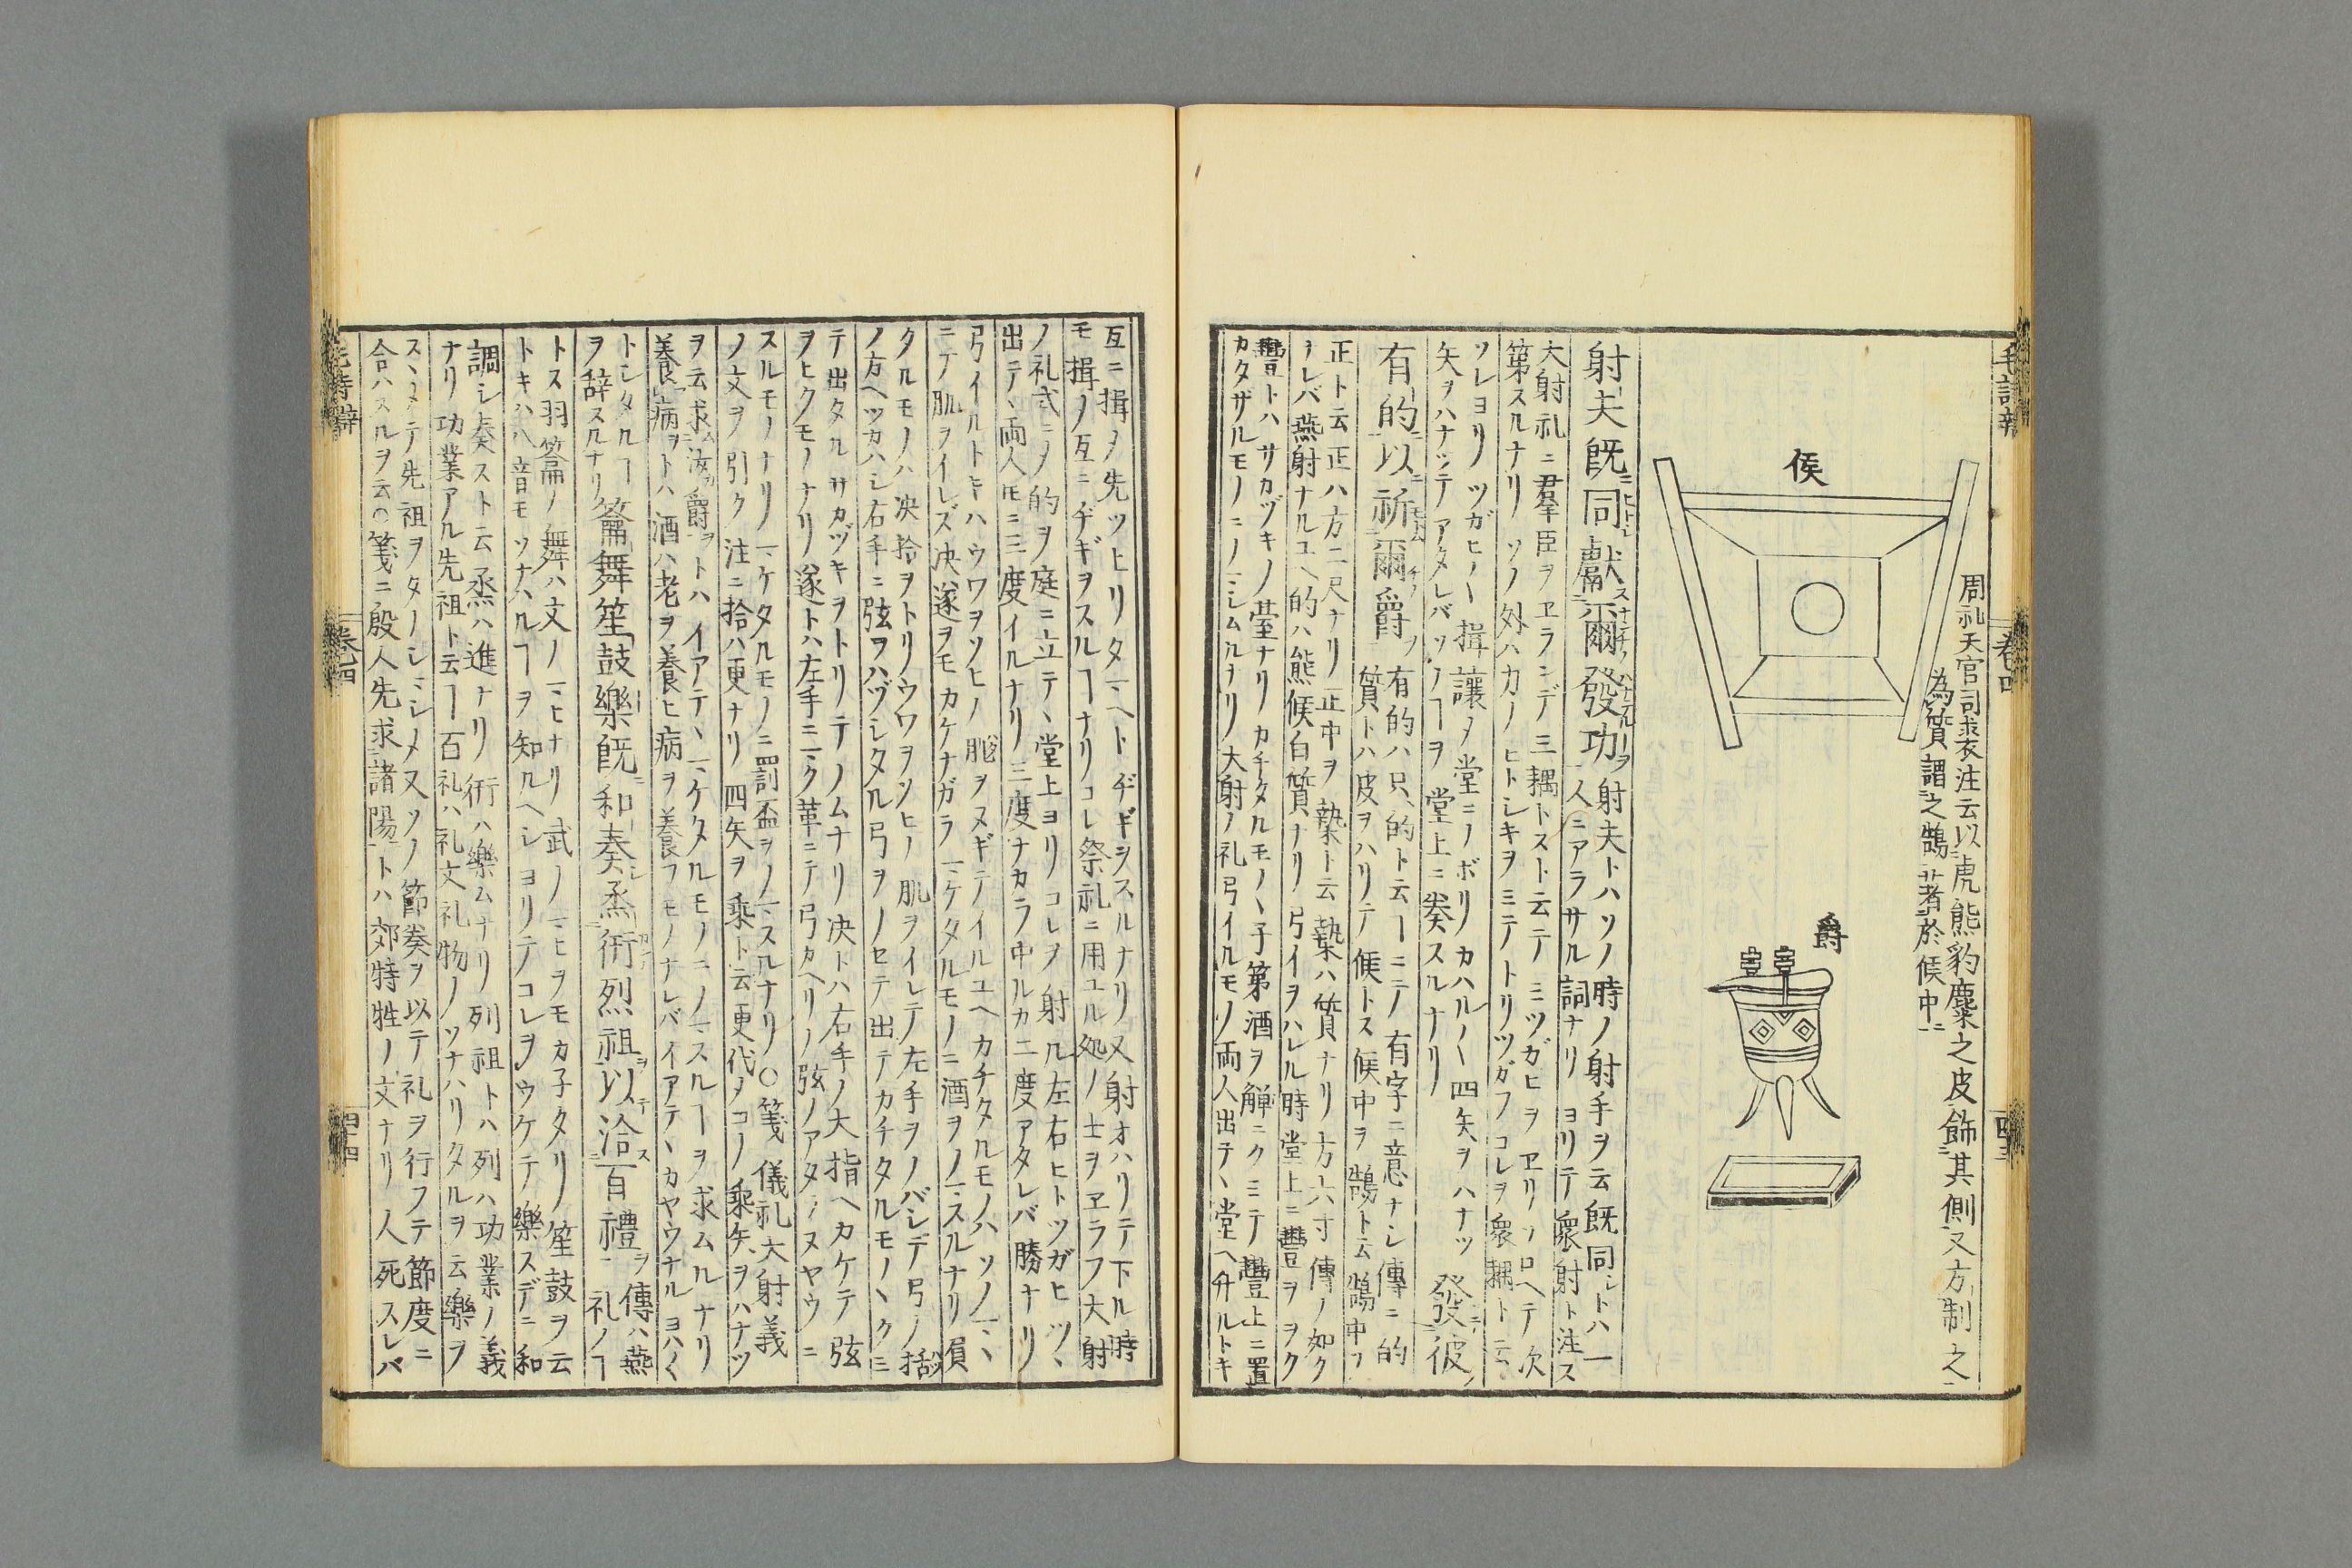 侯
周礼天官司裘注云以虎熊豹麋之皮飾其側又方制之
為質謂之鵠著於侯中
爵
射夫既同獻爾發功
射夫トハソノ時ノ射手ヲ云既同シトハ一
人ニアラサル詞ナリ ヨリテ衆射ト注ス
大射礼ニ羣臣ヲヱランデ三耦トスト云テ三ツガヒヲヱリソロヘテ次
第スルナリ ソノ外ハカノヒトシキヲミテトリツガフコレヲ衆耦ト云
發彼
有的以祈爾爵
有的ハ只的ト云ーニテ有字ニ意ナシ傳ニ的
質トハ皮ヲハリテ侯トス侯中ヲ鵠ト云鵠中ヲ
正ト云正ハ方二尺ナリ正中ヲ槷ト云槷ハ質ナリ方六寸傳ノ如ク
ナレバ燕射ナルユヘ的ハ熊侯白質ナリ 弓イヲハレル時堂上ニ豐ヲヲク
豐トハサカヅキノ臺ナリ カチタルモノヽ子第酒ヲ觶ニクミテ豐上ニ置
カタザルモノニノマシムルナリ 大射ノ礼弓イルモノ両人出テヽ堂ヘ升ルトキ
毛詩辨
卷四
互ニ揖メ先ツヒリタヽヘトヂギヲスルナリ又射オハリテ下ル時
モ揖メ互ニヂギヲスルーナリコレ祭礼ニ用ユル処ノ士ヲヱラフ大射
ノ礼式ニメ的ヲ庭ニ立テヽ堂上ヨリコレヲ射ル左右ヒトツガヒツヽ
出テヽ両人モニ三度イルナリ 三度ナカラ中ルカ二度アタレバ勝ナリ
弓イルトキハウワヲソヒノ肌ヲヌギテイルユヘカチタルモノハソノマヽ
ニテ肌ヲイレズ决遂ヲモカケナガラマケタルモノニ酒ヲノマスルナリ 負
タルモノハ决拾ヲトリウワヲソヒノ肌ヲイレテ左手ヲノバシデ弓ノ括
ノ方ヘツカハシ右手ニ弦ヲハヅシタル弓ヲノセテ出テカチタルモノヽクミ
テ出タルサカヅキヲトリテノムナリ 决トハ右手ノ大指ヘカケテ弦
ヲヒクモノナリ 遂トハ左手ニマク革ニテ弓カヘリノ弦ノアタラヌヤウニ
スルモノナリ マケタルモノニ罰盃ヲノマスルナリ ○箋儀礼大射義
ノ文ヲ引ク 注ニ拾ハ更ナリ 四矢ヲ乘ト云更代メコノ乘矢ヲハナツ
ヲ云求汝爵トハイアテヽマケタルモノニノマスルーヲ求ムルナリ
養病ヲトハ酒ハ老ヲ養ヒ病ヲ養フモノナレバイアテヽカヤウナルヨハく
トシタルーヲ辞スルナリ
籥舞笙鼓樂既和奏烝衎烈祖以洽百禮
傳ハ燕
礼ノー
トス羽籥ノ舞ハ文ノマヒナリ 武ノマヒヲモカ子タリ 笙鼓ヲ云
トキハ八音モソナハルーヲ知ルヘシヨリテコレヲウケテ樂スデニ和
調シ奏スト云烝ハ進ナリ 衎ハ樂ムナリ 列祖トハ列ハ功業ノ義
ナリ 功業アル先祖ト云ー百礼ハ礼文礼物ノソナハリタルヲ云樂ヲ
スヽメテ先祖ヲタノシマシメ又ソノ節奏ヲ以テ礼ヲ行フテ節度ニ
合ハスルヲ云○箋ニ殷人先求諸陽トハ郊特牲ノ文ナリ 人死スレバ
毛詩辨
卷四
四十四